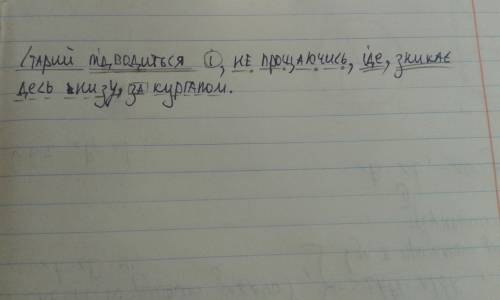 Старий підводиться і, не прощаючись, іде, зникає
десь внизу, за курганом.